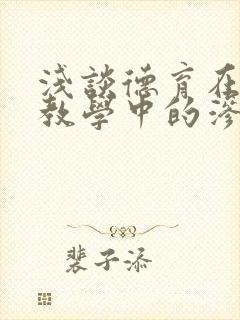 浅談德育在
教學中的滲
裴子添